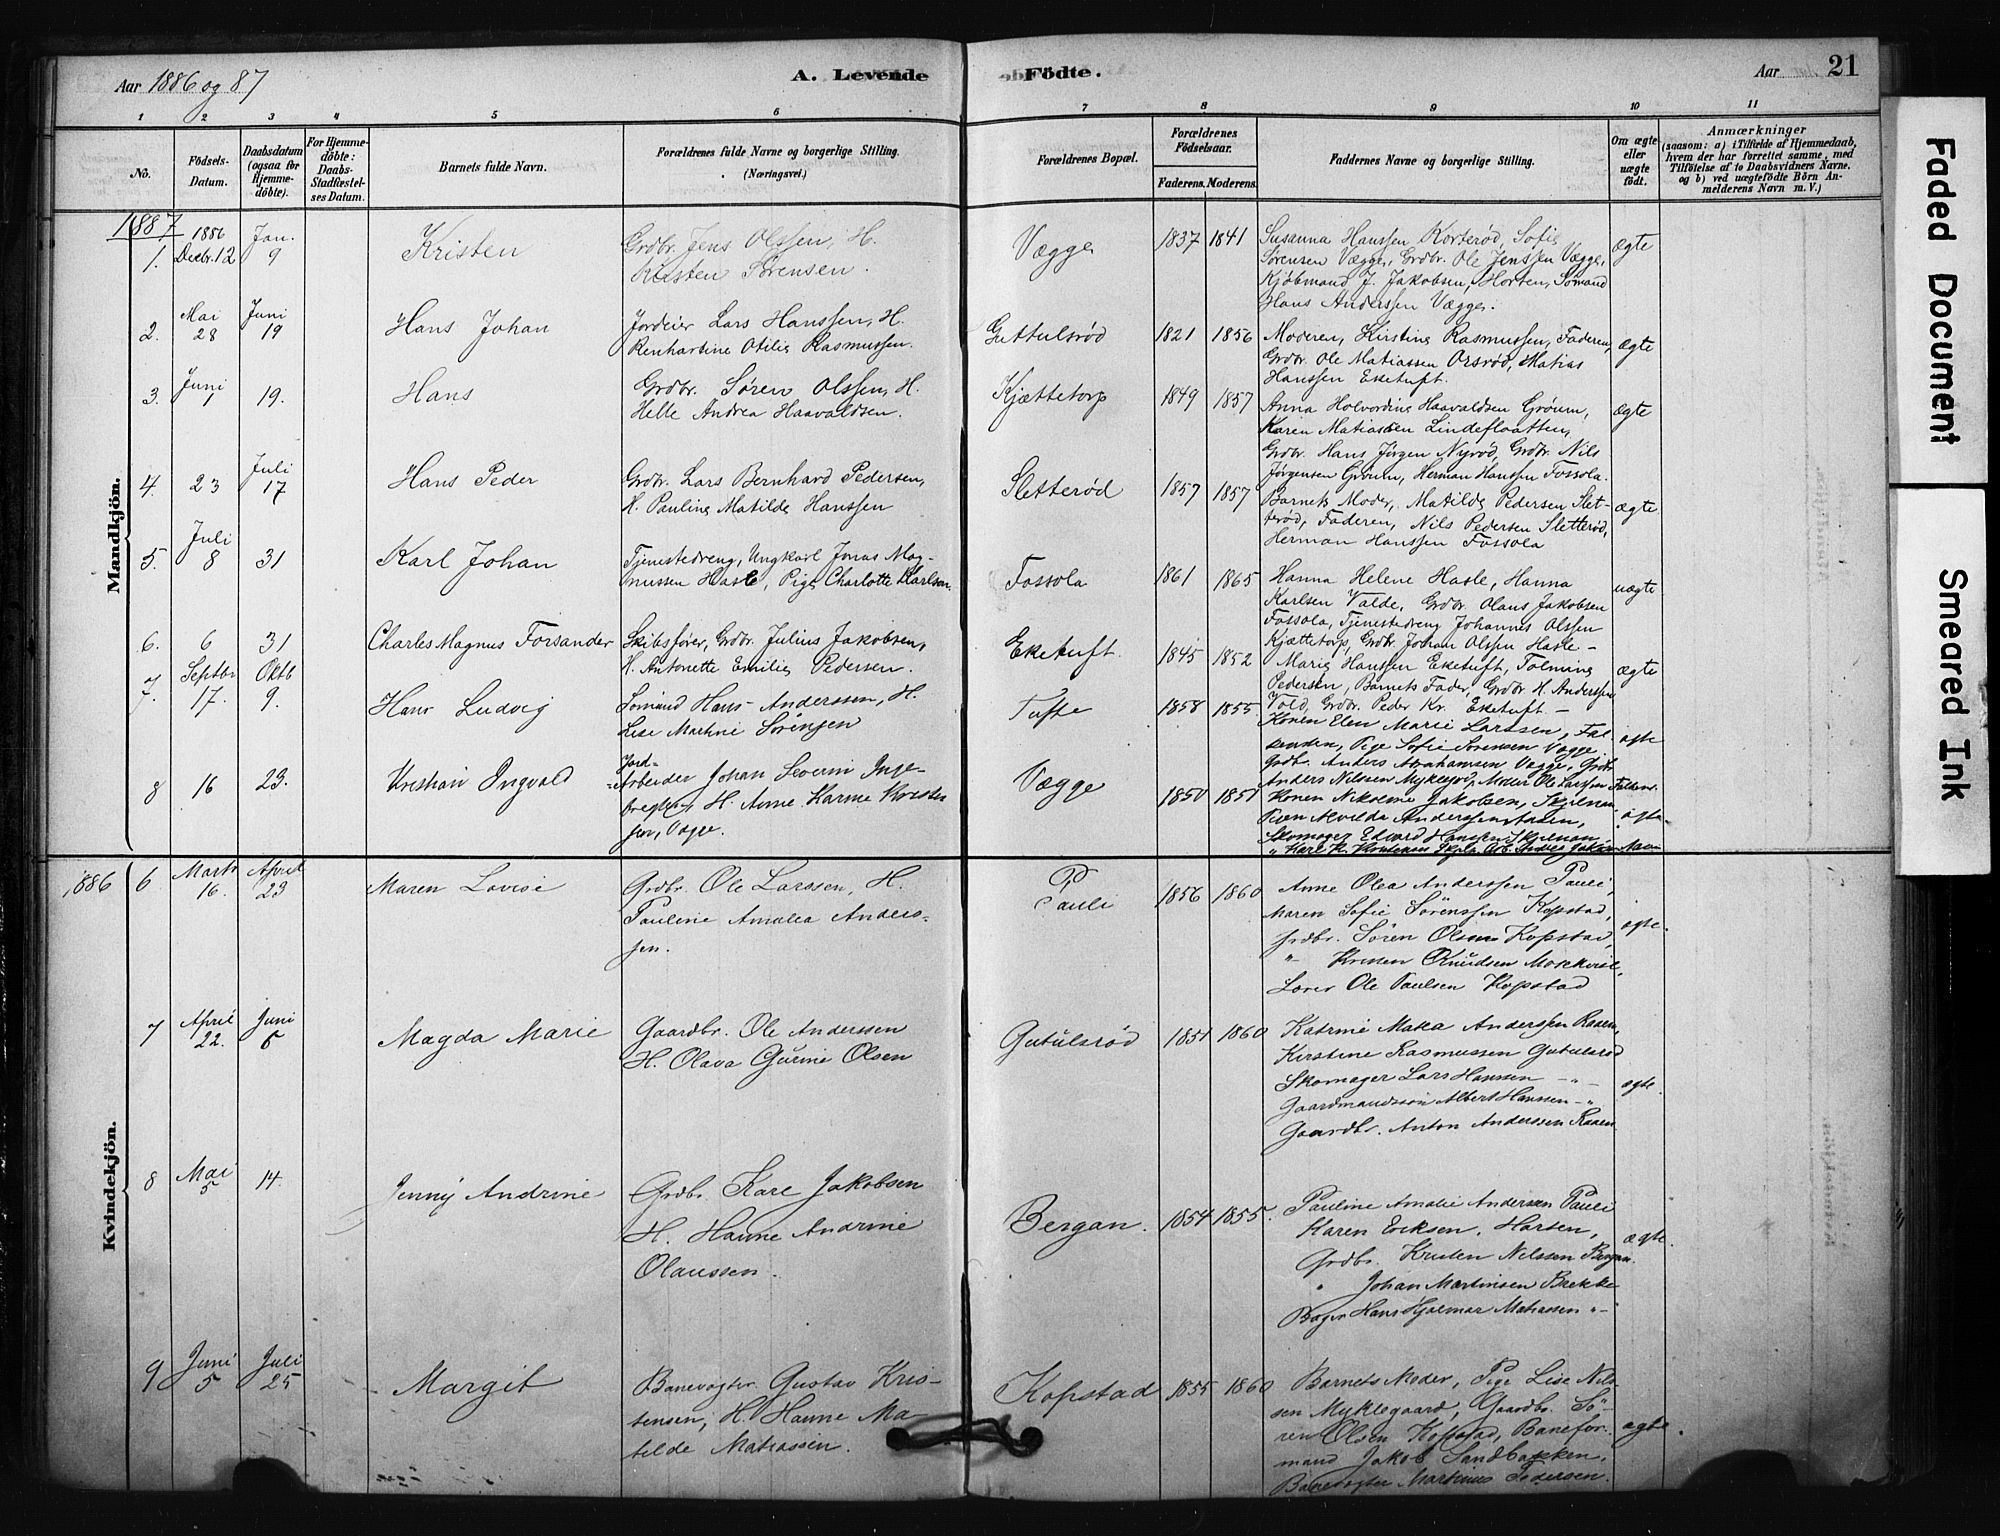 Aar 1886 og 87
A. Levende Födte.
Aar
21
1 2 3 4 5 6 7 8 9 10 11
No.
Födsels-Datum.
Daabsdatum (ogsaa for Hjemme-döbte).
For Hjemme-döbte: Daabs-Stadfæstel-ses Datum.
Barnets fulde Navn.
Forældrenes fulde Navne og borgerlige Stilling. (Næringsvei.)
Forældrenes Bopæl.
Forældrenes Födselsaar.
Faderens. Moderens.
Faddernes Navne og borgerlige Stilling.
Om ægte eller uægte födt.
Anmærkninger
(saasom: a) i Tilfælde af Hjemmedaab, hvem der har forrettet samme, med Tilföielse af to Daabsvidners Navne. og b) ved uægtefödte Börn Anmelderens Navn m. V.)
Mandkjön.
1887
1. 1886 Decbr. 12 Jan. 9 Kristen
Grdbr. Jens Olssen, H.
Kristen Sørensen.
Vægge 1837 1841
Susanna Hanssen Korterød, Sofie
Sørensen Vægge, Grdbr. Ole Jenssen Vægge,
Kjøbmand J. Jakobsen, Horten, Sømand
Hans Andersen Vægge.
ægte
2. Mai 28 Juni 19 Hans Johan
Jordeier Lars Hanssen, H.
Renhartine Otilie Rasmussen.
Guttulsrød 1821 1856
Moderen, Kirstine Rasmussen, Faderen,
Grdbr. Ole Matiassen Orsrød, Matias
Hanssen Eketuft.
ægte
3. Juni 1 19. Hans
Grdbr. Sören Olssen, H.
Helle Andrea Haavaldsen.
Kjættetorp 1849 1857
Anna Holvordine Haavaldsen Grøum,
Karen Matiassen Lindefloatten,
Grdbr. Hans Jörgen Nyrød, Grdbr. Nils
Jørgensen Grøum, Herman Hanssen Fossola.
ægte
4. 23 Juli 17 Hans Peder
Grdbr. Lars Bernhard Pedersen,
H. Pauline Matilde Hanssen
Sletterød 1857 1857
Barnets Moder, Matilde Pedersen Slet-
terød, Faderen, Nils Pedersen Sletterød,
Herman Hanssen Fossola
ægte
5. Juli 8 31 Karl Johan
Tjenestedreng, Ungkarl Jonas Mag-
nussen Hasle, Pige Charlotte Karlsen
Fossola 1861 1865
Hanna Helene Hasle, Hanna
Karlsen Valde, Grdbr. Olaus Jakobsen
Fossola, Tjenestedreng Johannes Olssen
Kjættetorp, Grdbr. Johan Olssen Hasle -
uægte
6. 6 31 Charles Magnus Forsander
Skibsfører, Grdbr. Julius Jakobsen,
H. Antonette Emilie Pedersen.
Eketuft. 1845 1852
Marie Hanssen Eketuft, Tolmine
Pedersen, Barnets Fader, Grdbr. H. Anderssen
Vold, Grdbr. Peder Kr. Eketuft -
ægte
7. Septbr 17. Oktb 9. Hans Ludvig
Sømand Hans Anderssen, H.
Lise Martine Sörensen
Tufte 1858 1855
Konen Elen Marie Larssen, Fal-
kenden, Pige Sofie Sørensen Vægge
Grdb. Anders Abrahamsen Vægge, Grdbr
Anders Nilssen Myklegrd, Ole Larssen Falken.
ægte
8 16 23. Kristian Ingvald
Jord-
=Arbeider Johan Severin Inge-
bregtsen, H. Anne Karine Kristen
sen, Vægge.
Vægge 1850 1851
Konen Nikoline Jakobsen,
Alvilda Anderssen
Skomager Edvard Hanssen
ægte
Kvindekjön.
1886 6 Marts 16. April 23 Maren Lovise
Grdbr. Ole Larssen, H.
Pauline Amalia Anders-
sen.
Pauli 1856 1860
Anne Olea Anderssen Pauli,
Maren Sofie Sørenssen Kopstad,
Grdbr. Søren Olsen Kopstad,
" Kristen Knudsen Moskvil,
Lærer Ole Paulsen Kopstad
ægte.
7 April 22. Juni 6 Magda Marie
Gaardbr. Ole Anderssen
H. Olava Gurine Olsen
Gutulsrød 1851 1860
Katrine Matea Anderssen Raaen,
Kirstine Rasmussen Gutulsrød
Skomager Lars Hanssen - " -
Gaardmandssøn Albert Hanssen - "
Gaardbr. Anton Anderssen Raaen
ægte.
8 Mai 5 14. Jenny Andrine
Grdbr. Karl Jakobsen
H. Hanne Andrine
Olaussen.
Bergan. 1854 1855.
Pauline Amalie Andersen Pauli
Karen Eriksen, Horten,
Grdbr. Kristen Nilssen Bergan.
" Johan Martinsen Brekke
Bager Hans Hjalmar Matiassen " -
ægte.
9 Juni 5 Juli 25 Margit
Banevogter Gustav Kris-
tensen, H. Hanne Ma-
tilde Matiassen.
Kopstad 1855 1860
Barnets Moder, Pige Lise Nils-
sen Myklegaard, Gaardbr. Sö-
ren Olsen Kopstad, Banefor-
mand Jakob Sandbakken,
Banevogter Martinus Pedersen.
ægte.
Faded Document
Smeared Ink